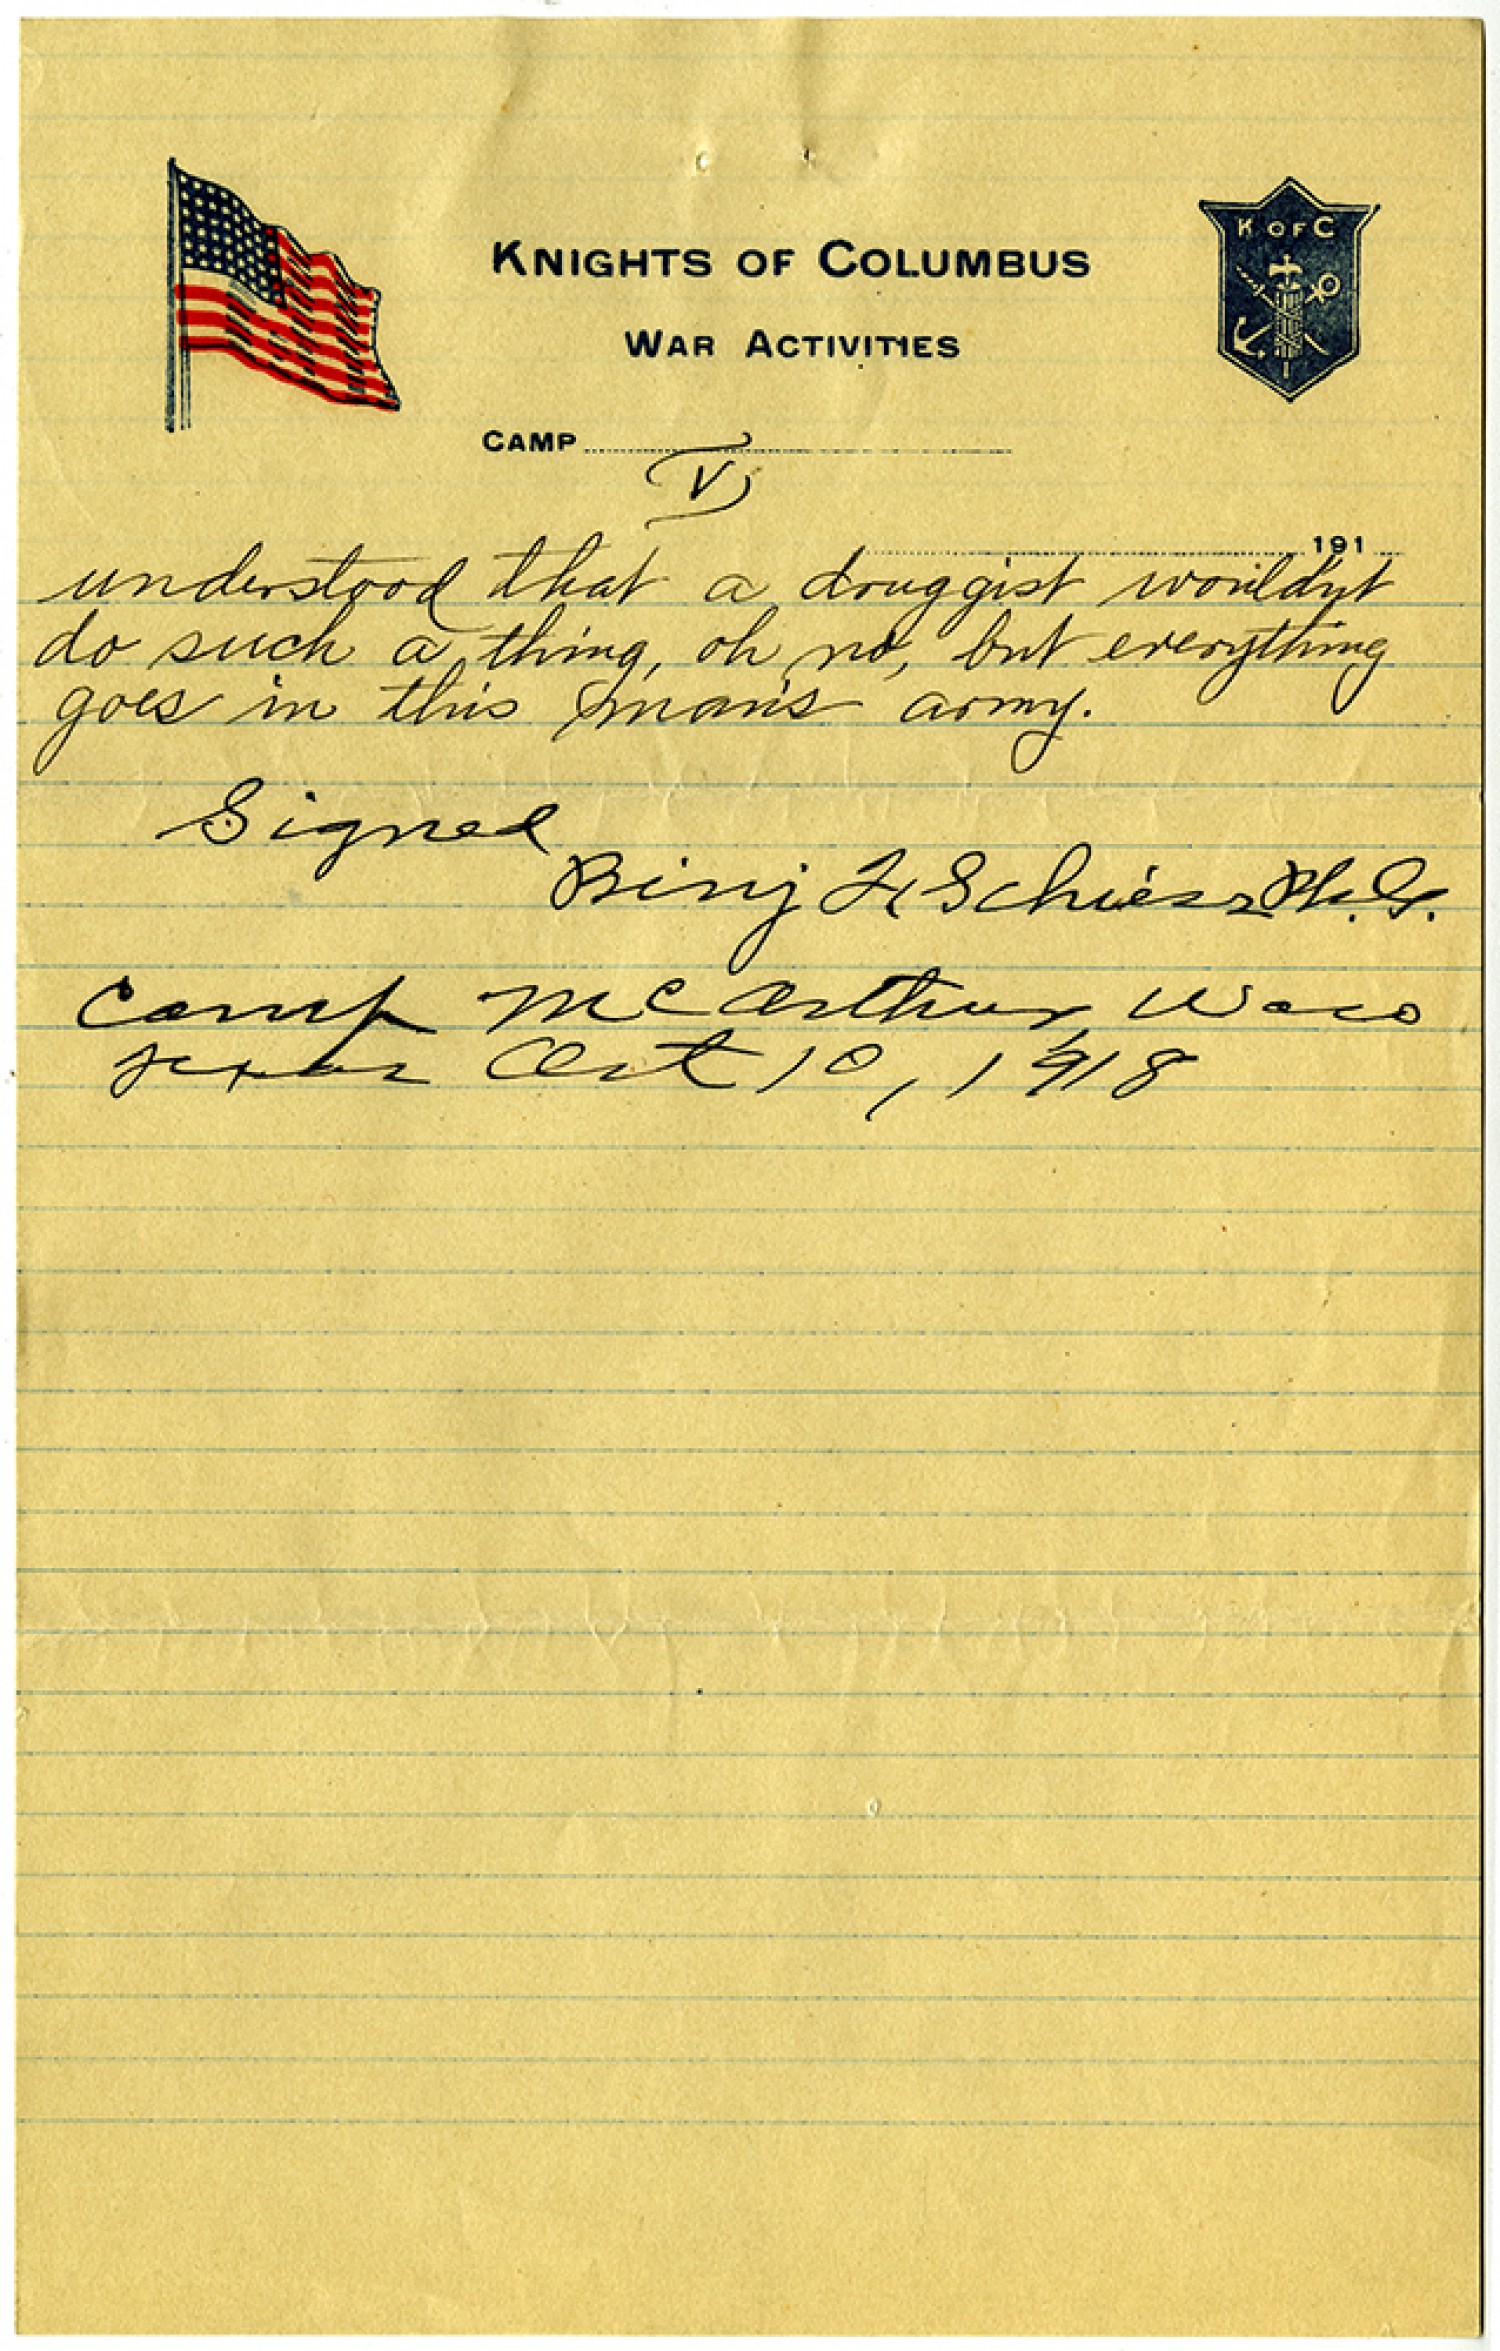 K OF C
KNIGHTS OF COLUMBUS
WAR ACTIVITIES
CAMP
V
191
understood that a druggist wouldn't
do such a thing, oh no, but everything
goes in this man's army.
Signed
Benj F Schiesz Ph.G.
Camp McArthur, Waco
Texas Oct 10, 1918